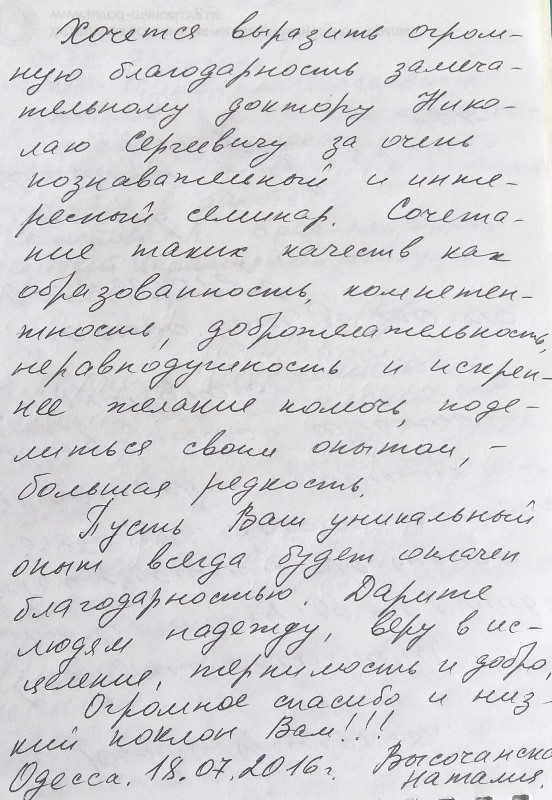 Хочется выразить огром-
ную благодарность замеча-
тельному доктору Нико-
лаю Сергеевичу за очень
познавательный и инте-
ресный семинар. Сочета-
ние таких качеств как
образованность, компетен-
тность, доброжелательность,
неравнодушность и искрен-
нее желание помочь, поде-
литься своим опытом, –
большая редкость.
Пусть Ваш уникальный
опыт всегда будет оплачен
благодарностью. Дарите
людям надежду, веру в ис-
целение, терпимость и добро,
Огромное спасибо и низ-
кий поклон Вам!!!
Одесса. 18.07.2016г. Высочанск
Наталия.